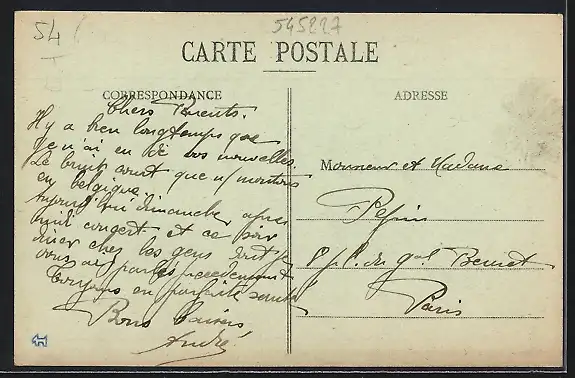 54
545227
CARTE POSTALE
CORRESPONDANCE
ADRESSE
Chers Parents.
Il y a bien longtemps que
je n'ai eu de vos nouvelles.
Le bruit court que n/ montons
en Belgique.
Aujourd'hui dimanche, après
midi concert et ce soir
diner chez les gens dont je
vous ai parlés précédemment
Toujours en parfaite santé
Bons baisers,
André
Monsieur et Madame
Pépin
du Gal Beuret
Paris